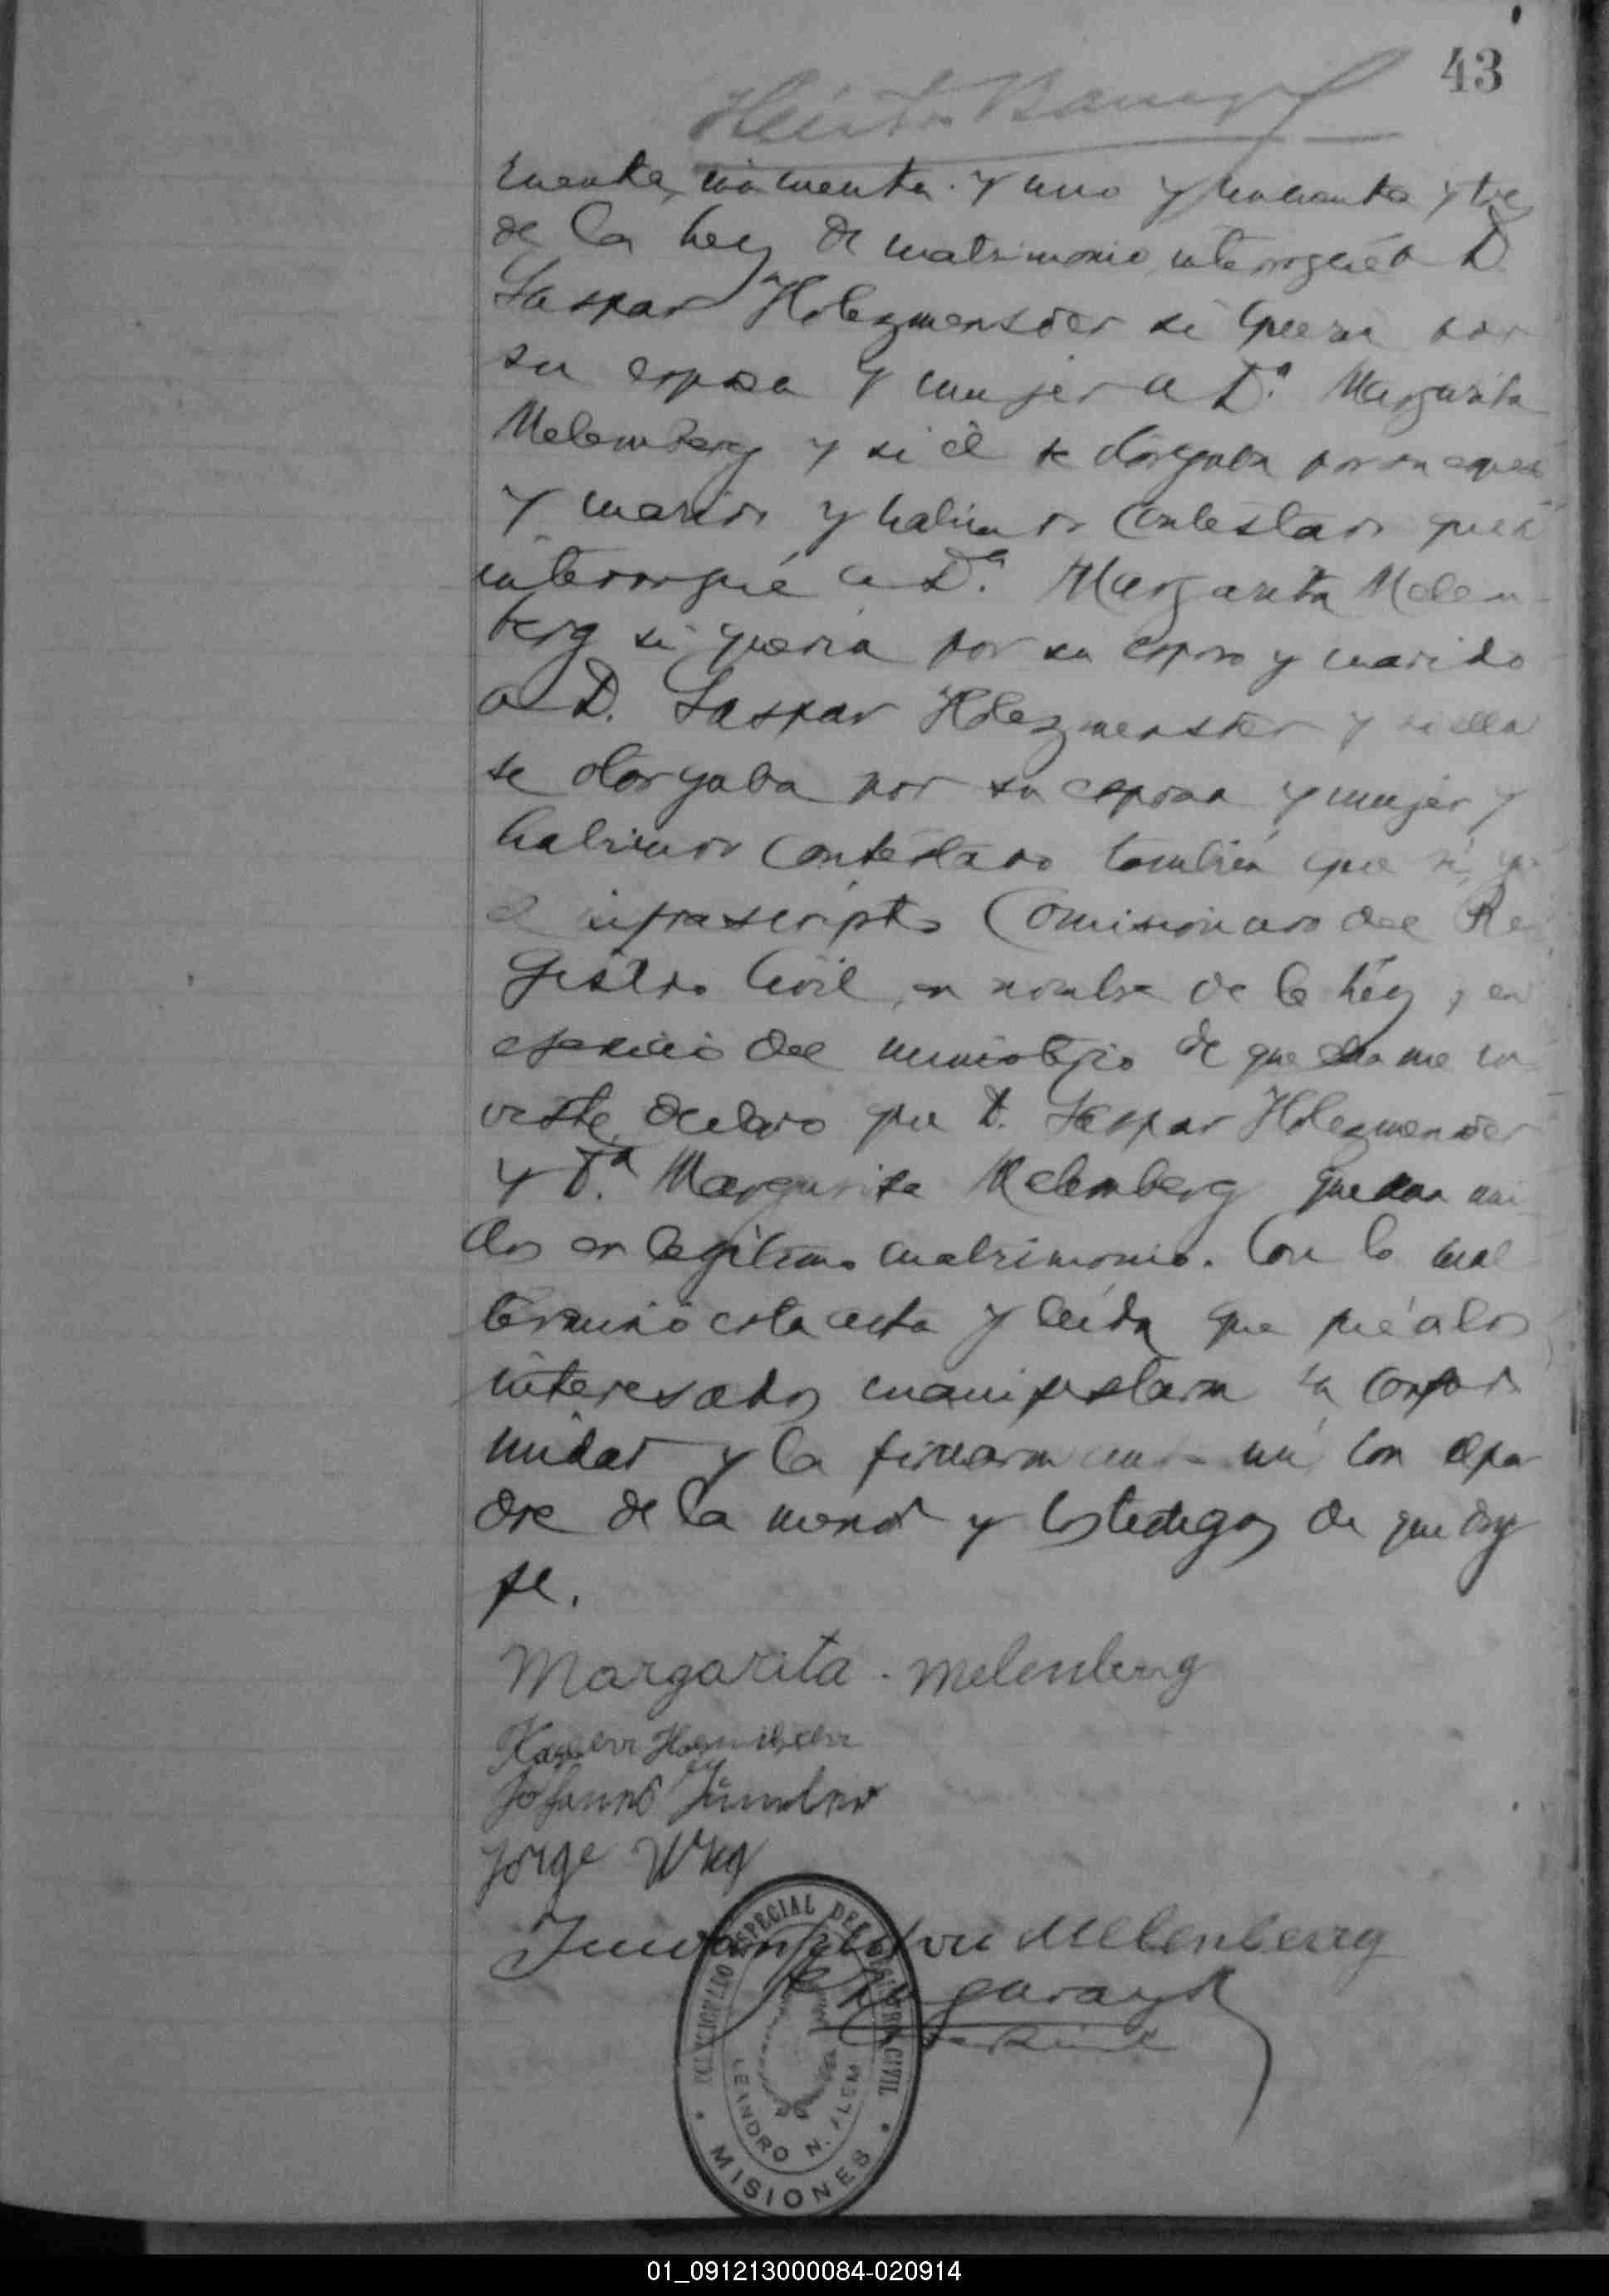 43
cuenta, cincuenta y uno y cincuenta y tres
de la Ley de matrimonio interrogué a D.
Gaspar Holezmenster si queria por
su esposa y mujer a Da. Margarita
Melemberg y si él se otorgaba por su esposo
y marido y habiendo contestado que si
interrogué a Da. Margarita Melem-
berg si queria por su esposo y marido
a D. Gaspar Holezmenster y si ella
se otorgaba por su esposa y mujer y
habiendo contestado también que sí, yo
el infrascripto Comisionado del Re-
gistro Civil, en nombre de la Ley, y en
ejercicio del ministerio de que ella me in-
viste, declaro que D. Gaspar Holezmenster
y Da. Margarita Melemberg quedan uni-
dos en legítimo matrimonio. Con lo cual
terminó esta acta y leída que fué a los
interesados manifestaron su confor-
midad y la firmaron ante mí con el pa-
dre de la menor y los testigos de que doy
fe.
Margarita. Melenberg
Johannes
Jorge
Melenberg
Garay
COMISIONADO ESPECIAL DEL REGISTRO CIVIL
LEANDRO N. ALEM
MISIONES
01_091213000084-020914